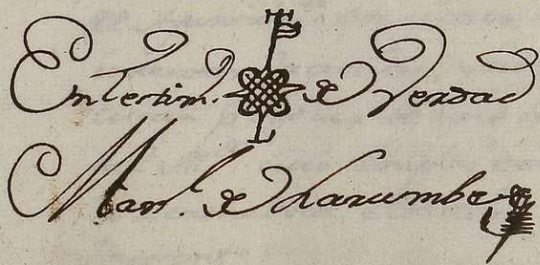 En testim.º de Verdad
Man.l de Larumbe